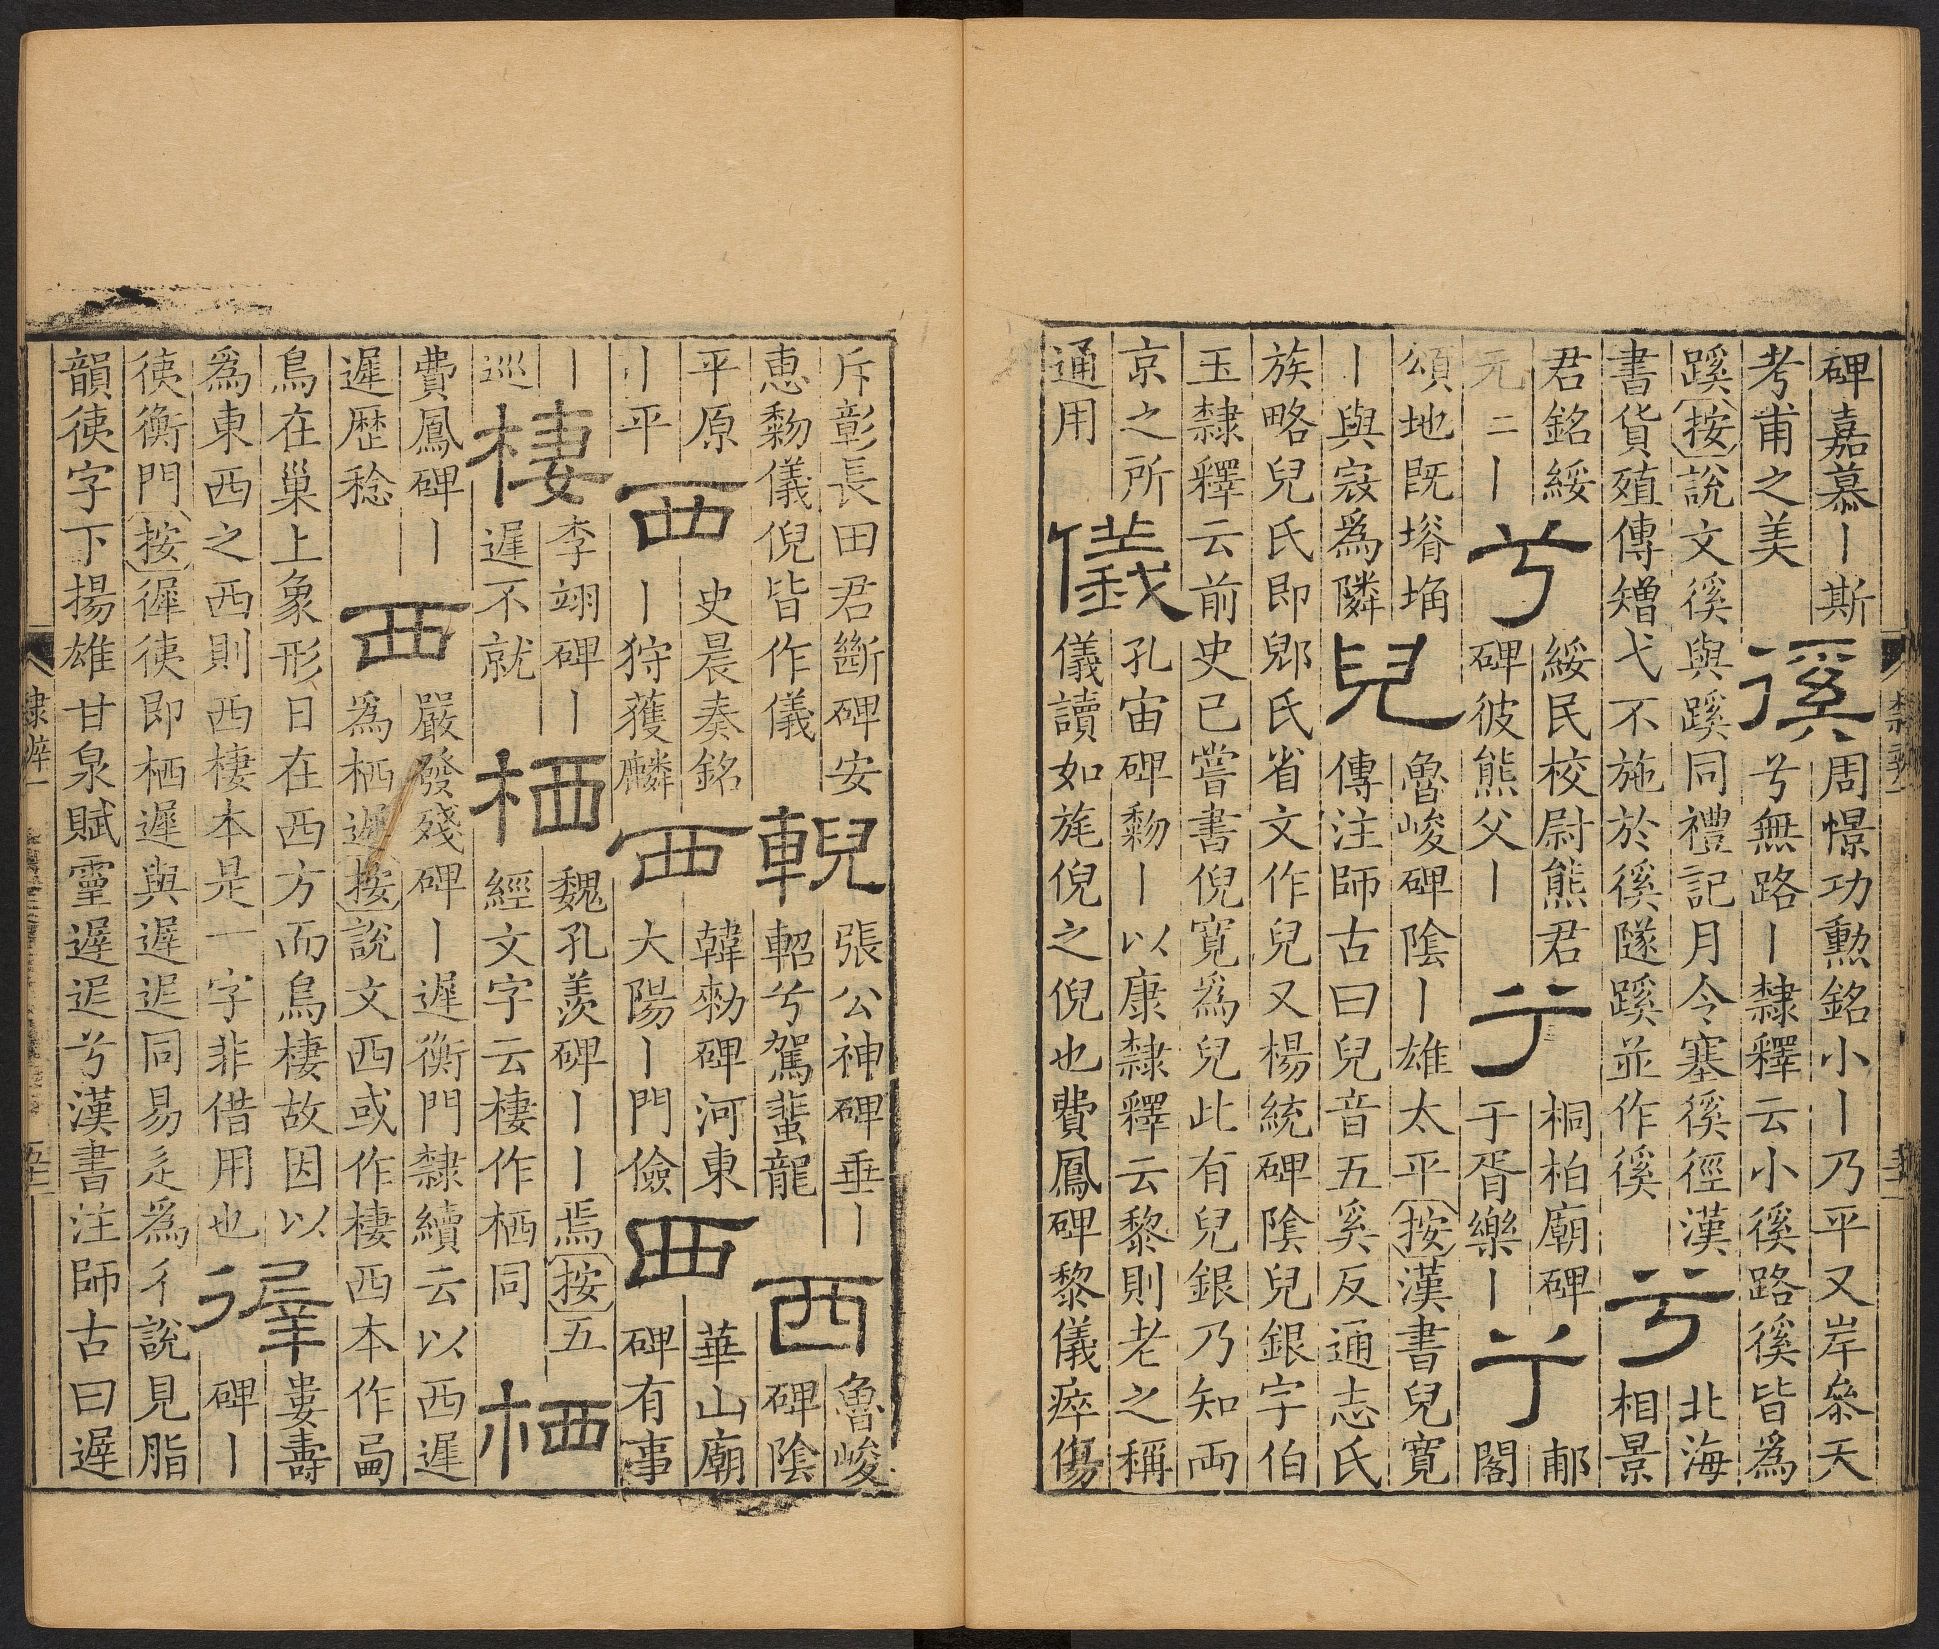 碑嘉慕丨斯
考甫之美
徯
周憬功勲銘小丨乃平又岸叅天
兮無路丨隸釋云小徯路徯皆為
蹊按說文徯與蹊同禮記月令塞徯徑漢
書貨殖傳矰弋不施於徯隧蹊並作徯
兮
北海
相景
君銘綏
元二丨
兮
綏民校尉熊君
碑彼熊父丨
兮
桐柏廟碑
于胥樂丨
兮
郙
閣
頌地既塉埆
丨與寇爲隣
兒
魯峻碑陰丨雄太平按漢書兒寬
傳注師古曰兒音五奚反通志氏
族略兒氏即郳氏省文作兒又楊統碑陰兒銀字伯
玉隸釋云前史已嘗書倪寬爲兒此有兒銀乃知兩
京之所
通用
儀
孔宙碑黎丨以康隸釋云黎則老之稱
儀讀如旄倪之倪也費鳳碑黎儀瘁傷
斥彰長田君斷碑安
惠黎儀倪皆作儀
輗
張公神碑垂丨
軺兮駕蜚龍
西
魯峻
碑陰
平原
丨平
西
史晨奏銘
丨狩獲麟
西
韓勑碑河東
大陽丨門儉
西
華山廟
碑有事
丨
巡
棲
李翊碑丨
遲不就
栖
魏孔羨碑丨丨焉按五
經文字云棲作栖同
栖
費鳳碑丨
遲歷稔
西
嚴發殘碑丨遲衡門隸續云以西遲
爲栖遲按說文西或作棲西本作㢴
鳥在巢上象形日在西方而鳥棲故因以
爲東西之西則西棲本是一字非借用也
徲
婁壽
碑丨
㣢衡門按徲㣢即栖遲與遲迟同易辵爲彳說見脂
韻㣢字下揚雄甘泉賦靈遲迟兮漢書注師古曰遲
隸辨一